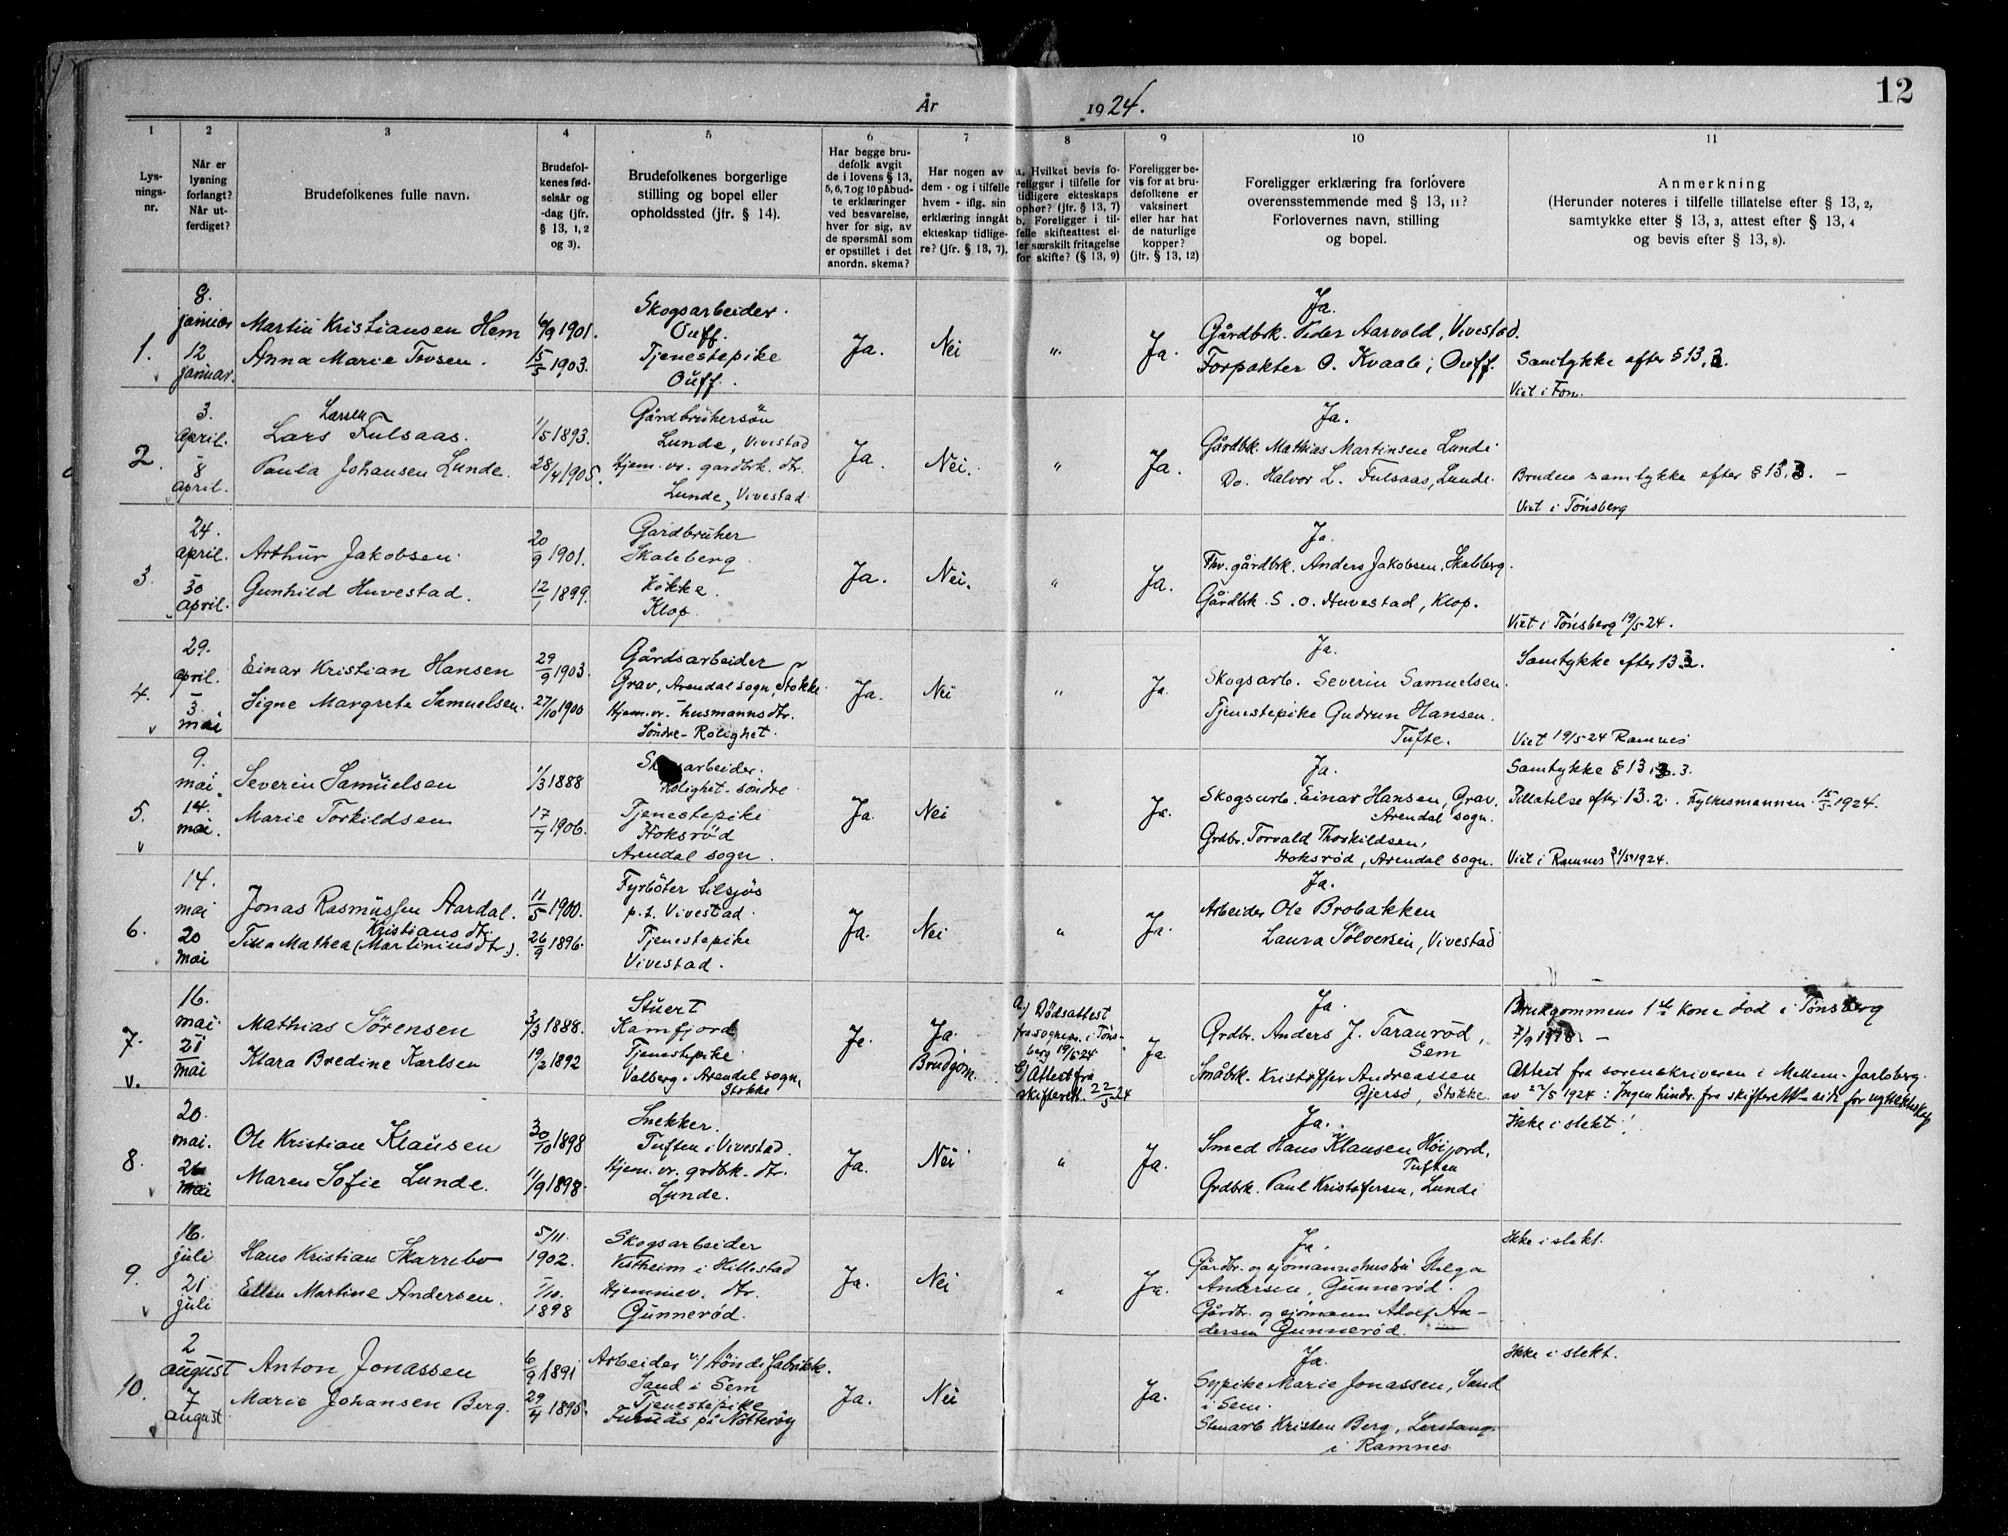 12
År 1924.
1 2 3 4 5 6 7 8 9 10 11
Lys-
nings-
nr.
Når er
lysning
forlangt?
Når ut-
ferdiget?
Brudefolkenes fulle navn.
Brudefol-
kenes fød-
selsår og
-dag (jfr.
§ 13, 1, 2
og 3).
Brudefolkenes borgerlige
stilling og bopel eller
opholdssted (jfr. § 14).
Har begge bru-
defolk avgit
de i lovens § 13,
5, 6, 7 og 10 påbud-
te erklæringer
ved besvarelse,
hver for sig, av
de spørsmål som
er opstillet i det
anordn. skema?
Har nogen av
dem - og i tilfelle
hvem - iflg. sin
erklæring inngått
ekteskap tidlige-
re? (jfr. § 13, 7).
a. Hvilket bevis fo-
religger i tilfelle for
tidligere ekteskaps
ophør? (jfr. § 13, 7)
b. Foreligger i til-
felle skifteattest el-
ler særskilt fritagelse
for skifte? (§ 13, 9)
Foreligger be-
vis for at bru-
defolkene er
vaksinert
eller har hat
de naturlige
kopper?
(jfr. § 13, 12)
Foreligger erklæring fra forlovere
overensstemmende med § 13, 11?
Forlovernes navn, stilling
og bopel.
Anmerkning
(Herunder noteres i tilfelle tillatelse efter § 13, 2,
samtykke efter § 13, 3, attest efter § 13, 4
og bevis efter § 13, 8).
1.
8.
januar
12
januar.
Martin Kristiansen Hem
Anna Marie Tovsen.
6/9 1901.
15/5 1903.
Skogsarbeider.
Ouff.
Tjenestepike
Ouff.
Ja.
Nei
"
Ja.
Ja.
Gårdbk. Peder Aarvold, Vivestad.
Forpakter O. Kvaale, Ouff.
Samtykke efter § 13, 3.
Viet i Fon.
2.
3.
april.
8
april.
Larsen
Lars Fulsaas.
Paula Johansen Lunde.
1/5 1893.
28/4 1905.
Gårdbrukersön
Lunde, Vivestad
Hjem. vr. gardbk. dtr.
Lunde, Vivestad
Ja.
Nei.
"
Ja.
Ja.
Gårdbk. Mathias Martinsen Lunde
Do. Halvor L. Fulsaas, Lunde.
Brudens samtykke efter § 13. 3. –
Viet i Tønsberg
3.
24.
april.
30
april.
Arthur Jakobsen.
Gunhild Huvestad.
20/9 1901.
12/1 1899.
Gardbruker
Skaleberg
Kokke.
Klop.
Ja.
Nei.
"
Ja.
Ja.
Fhv. gårdbk. Anders Jakobsen, Skaleberg.
Gårdbk. S. O. Huvestad, Klop.
Viet i Tønsberg 19/5 24.
4.
29.
april.
3
mai
Einar Kristian Hansen
Signe Margrete Samuelsen.
29/9 1903.
27/10 1900
Gårdsarbeider
Grav, Arendal sogn, Stokke.
Hjem. vr. husmannsdtr.
Söndre-Rolighet.
Ja.
Nei
"
Ja
Ja.
Skogsarb. Severin Samuelsen.
Tjenestepike Gudrun Hansen.
Tufte.
Samtykke efter 13 3.
Viet 19/5 24 Ramnes
5.
9.
mai.
14.
mai.
Severin Samuelsen
Marie Torkildsen
1/3 1888
17/7 1906.
Skogsarbeider.
Rolighet-söndre.
Tjenestepike
Hoksröd
Arendal sogn.
Ja
Nei
"
Ja.
Ja.
Skogsarb. Einar Hansen, Grav,
Arendal sogn.
Grdbr. Torvald Thorkildsen,
Hoksrød, Arendal sogn.
Samtykke § 13. 3.
Tillatelse efter 13. 2. Fylkesmannen 15/5 1924.
Viet i Ramnes 21/5 1924.
6.
14.
mai
20
mai
Jonas Rasmussen Aardal.
Kristiansdtr.
Tilla Mathea (Martiniusdtr.)
11/5 1900.
26/9 1896.
Fyrböter tilsjös
p.t. Vivestad.
Tjenestepike
Vivestad.
Ja.
Nei
"
Ja.
Ja.
Arbeider Ole Brobakken
Laura Sölversen, Vivestad
7.
16.
mai.
21
mai
Mathias Sørensen
Klara Bredine Karlsen
3/3 1888.
19/2 1892
Stuert
Kamfjord
Tjenestepike
Valberg i Arendal sogn,
Stokke
Ja.
Ja
Brudgom.
a) Dødsattest
fra sognepr. i Tøns-
berg 19/5 24
b) Attest fra
skifterett. 22/5 24
Ja
Ja
Grdbr. Anders J. Taranrød,
Sem
Småbk. Kristoffer Andreassen
Gjersø, Stokke.
Brudgommens 1ste kone död i Tønsberg
7/9 1918. –
Attest fra sorenskriveren i Mellem-Jarlsberg
av 22/5 1924: Ingen hindr. fra skifterettens side for nytt ekteskap
8.
20
mai.
26
mai
Ole Kristian Klausen
Maren Sofie Lunde.
30/10 1898
11/9 1898.
Snekker.
Tuften i Vivestad.
Hjem. vr. grdbk. dtr.
Lunde.
Ja.
Nei
"
Ja.
Ja.
Smed Hans Klausen Höijord,
Tuften
Grdbk. Paul Kristofersen, Lunde
Ikke i slekt!
9.
16.
juli
21
juli
Hans Kristian Skarrebo
Ellen Martine Andersen.
5/11.
1902.
1/10.
1898
Skogsarbeider
Vestheim i Hillestad
Hjemmev. dtr.
Gunnerød.
Ja.
Nei
"
Ja.
Ja.
Gårdbr. og sjømannshustru Helga
Andersen, Gunnerød.
Gårdbr. og sjømann Adolf An-
dersen Gunnerød.
Ikke i slekt.
10.
2
august
7
august
Anton Jonassen
Marie Johansen Berg.
6/9 1891
29/4 1895.
Arbeider v/ tönde fabrikk.
Sand i Sem
Tjenestepike
Furuås på Nötteröy
Ja.
Nei
Ja.
Ja.
Sypike Marie Jonassen, Sand
i Sem.
Stenarb Kristen Berg, Lerstang
i Ramnes
Ikke i slekt.